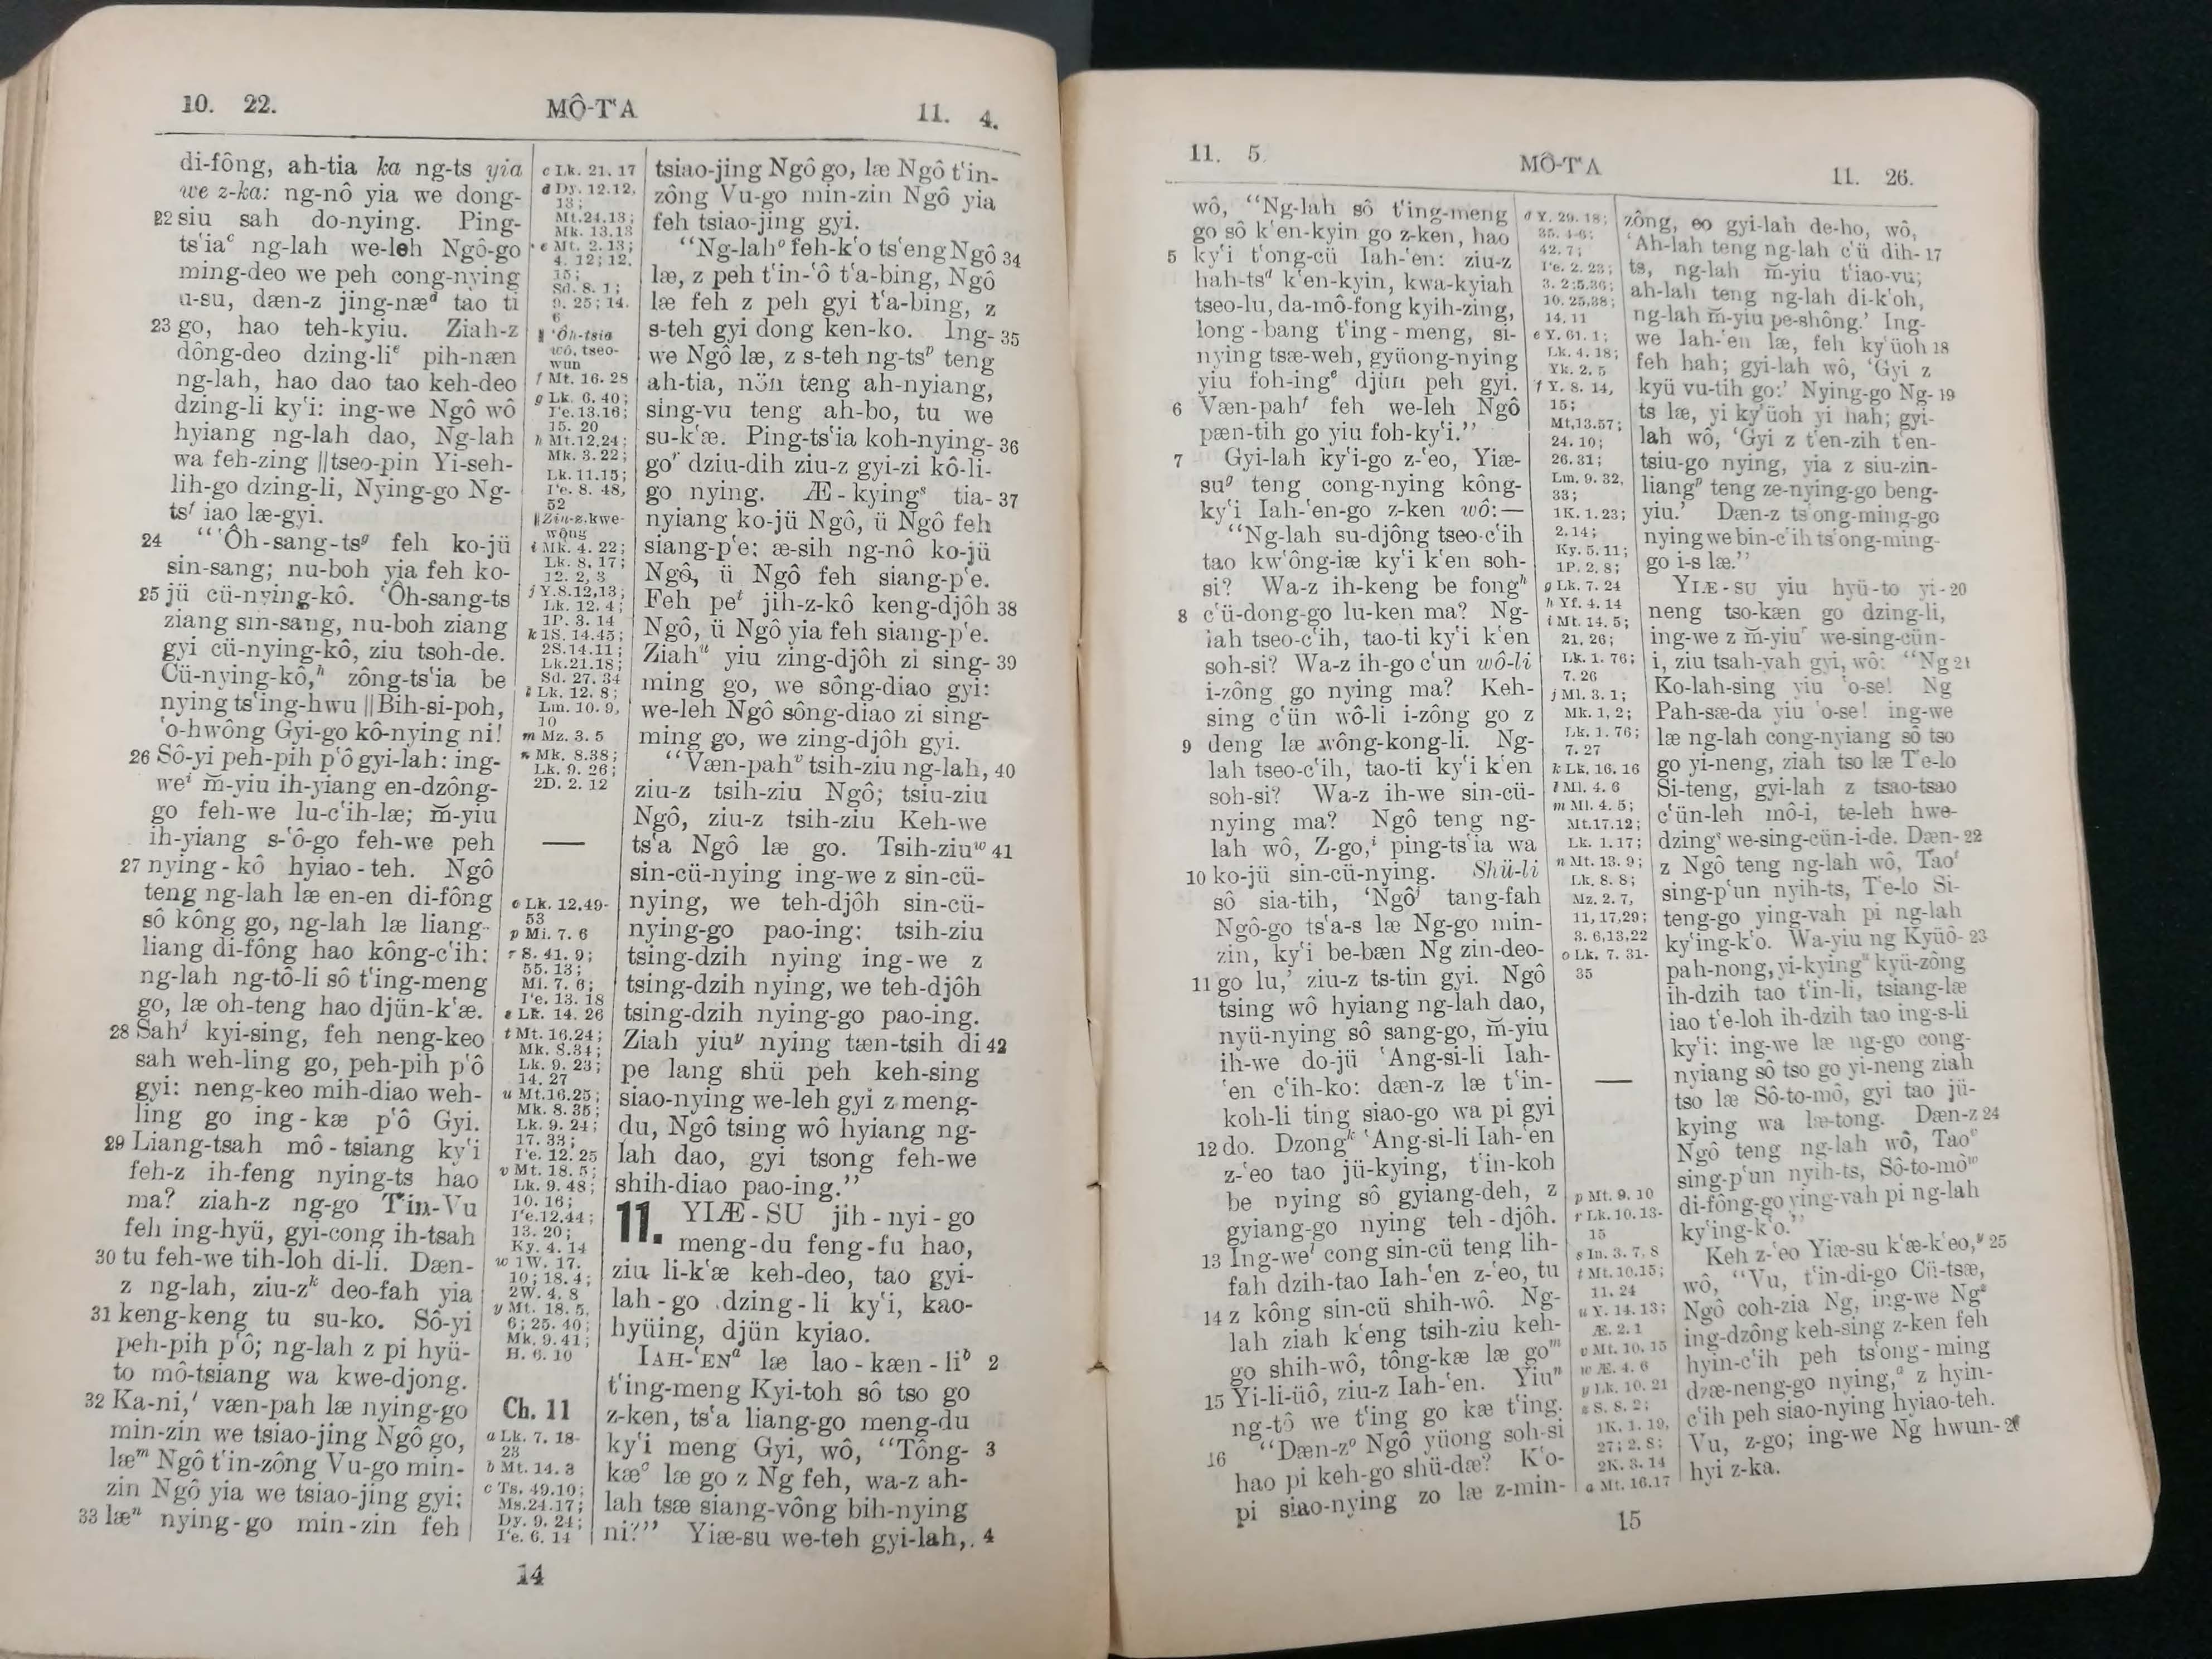 10. 22.
MÔ-TʻA
11. 4.
di-fông, ah-tia ka ng-ts yia
we z-ka: ng-nô yia we dong-
22 siu sah do-nying. Ping-
tsʻiaᶜ ng-lah we-leh Ngô-go
ming-deo we peh cong-nying
u-su, dæn-z jing-næᵈ tao ti
23 go, hao teh-kyiu. Ziah-z
dông-deo dzing-liᵉ pih-næn
ng-lah, hao dao tao keh-deo
dzing-li kyʻi: ing-we Ngô wô
hyiang ng-lah dao, Ng-lah
wa feh-zing ||tseo-pin Yi-seh-
lih-go dzing-li, Nying-go Ng-
tsᶠ iao læ-gyi.
24 “ʻÔh-sang-tsᵍ feh ko-jü
sin-sang; nu-boh yia feh ko-
25 jü cü-nying-kô. ʻÔh-sang-ts
ziang sin-sang, nu-boh ziang
gyi cü-nying-kô, ziu tsoh-de.
Cü-nying-kô,ʰ zông-tsʻia be
nying tsʻing-hwu ||Bih-si-poh,
ʻo-hwông Gyi-go kô-nying ni!
26 Sô-yi peh-pih pʻô gyi-lah: ing-
weⁱ m̆-yiu ih-yiang en-dzông-
go feh-we lu-cʻih-læ; m̆-yiu
ih-yiang s-ʻô-go feh-we peh
27 nying-kô hyiao-teh. Ngô
teng ng-lah læ en-en di-fông
sô kông go, ng-lah læ liang-
liang di-fông hao kông-cʻih:
ng-lah ng-tô-li sô tʻing-meng
go, læ oh-teng hao djün-kʻæ.
28 Sahʲ kyi-sing, feh neng-keo
sah weh-ling go, peh-pih pʻô
gyi: neng-keo mih-diao weh-
ling go ing-kæ pʻô Gyi.
29 Liang-tsah mô-tsiang kyʻi
feh-z ih-feng nying-ts hao
ma? ziah-z ng-go Tʻin-Vu
feh ing-hyü, gyi-cong ih-tsah
30 tu feh-we tih-loh di-li. Dæn-
z ng-lah, ziu-zᵏ deo-fah yia
31 keng-keng tu su-ko. Sô-yi
peh-pih pʻô; ng-lah z pi hyü-
to mô-tsiang wa kwe-djong.
32 Ka-ni,ˡ væn-pah læ nying-go
min-zin we tsiao-jing Ngô go,
læᵐ Ngô tʻin-zông Vu-go min-
zin Ngô yia we tsiao-jing gyi:
33 læⁿ nying-go min-zin feh
c Lk. 21. 17
d Dy. 12.12,
13;
Mt.24.13;
Mk. 13.13
e Mt. 2. 13;
4. 12; 12.
15;
Sd. 8. 1;
9. 25; 14.
6
|| ʻÔh-tsia
wô, tseo-
wun
f Mt. 16. 28
g Lk. 6. 40;
Iʻe. 13.16;
15. 20
h Mt.12.24;
Mk. 3.22;
Lk. 11.15;
Iʻe. 8. 48,
52
||Ziu-z,kwe-
wông
i Mk. 4. 22;
Lk. 8. 17;
12. 2, 3
j Y.8.12,13;
Lk. 12. 4;
1P. 3. 14
k 1S. 14.45;
2S.14.11;
Lk.21.18;
Sd. 27. 34
l Lk. 12. 8;
Lm. 10. 9,
10
m Mz. 3. 5
n Mk. 8.38;
Lk. 9. 26;
2D. 2. 12
o Lk. 12.49-
53
p Mi. 7. 6
r S. 41. 9;
55. 13;
Mi. 7. 6;
Iʻe. 13. 18
s Lk. 14. 26
t Mt. 16.24;
Mk. 8.34;
Lk. 9. 23;
14. 27
u Mt.16.25;
Mk. 8. 35;
Lk. 9. 24;
17. 33;
Iʻe. 12. 25
v Mt. 18. 5;
Lk. 9. 48;
10. 16;
Iʻe.12.44;
13. 20;
Ky. 4. 14
w 1W. 17.
10; 18. 4;
2W. 4. 8
y Mt. 18. 5,
6; 25. 40;
Mk. 9. 41;
H. 6. 10
Ch. 11
a Lk. 7. 18-
23
b Mt. 14. 3
c Ts. 49.10;
Ms.24.17;
Dy. 9. 24;
Iʻe. 6. 14
tsiao-jing Ngô go, læ Ngô tʻin-
zông Vu-go min-zin Ngô yia
feh tsiao-jing gyi.
“Ng-lahᵒ feh-kʻo tsʻeng Ngô 34
læ, z peh tʻin-ʻô tʻa-bing, Ngô
læ feh z peh gyi tʻa-bing, z
s-teh gyi dong ken-ko. Ing- 35
we Ngô læ, z s-teh ng-tsᵖ teng
ah-tia, nön teng ah-nyiang,
sing-vu teng ah-bo, tu we
su-kʻæ. Ping-tsʻia koh-nying- 36
goʳ dziu-dih ziu-z gyi-zi kô-li-
go nying. Æ-kyingˢ tia- 37
nyiang ko-jü Ngô, ü Ngô feh
siang-pʻe; æ-sih ng-nô ko-jü
Ngô, ü Ngô feh siang-pʻe.
Feh peᵗ jih-z-kô keng-djôh 38
Ngô, ü Ngô yia feh siang-pʻe.
Ziahᵘ yiu zing-djôh zi sing- 39
ming go, we sông-diao gyi:
we-leh Ngô sông-diao zi sing-
ming go, we zing-djôh gyi.
“Væn-pahᵛ tsih-ziu ng-lah, 40
ziu-z tsih-ziu Ngô; tsiu-ziu
Ngô, ziu-z tsih-ziu Keh-we
tsʻa Ngô læ go. Tsih-ziuʷ 41
sin-cü-nying ing-we z sin-cü-
nying, we teh-djôh sin-cü-
nying-go pao-ing; tsih-ziu
tsing-dzih nying ing-we z
tsing-dzih nying, we teh-djôh
tsing-dzih nying-go pao-ing.
Ziah yiuʸ nying tæn-tsih di 42
pe lang shü peh keh-sing
siao-nying we-leh gyi z meng-
du, Ngô tsing wô hyiang ng-
lah dao, gyi tsong feh-we
shih-diao pao-ing.”
11. YIÆ-SU jih-nyi-go
meng-du feng-fu hao,
ziu li-kʻæ keh-deo, tao gyi-
lah-go dzing-li kyʻi, kao-
hyüing, djün kyiao.
IAH-ʻENᵃ læ lao-kæn-liᵇ 2
tʻing-meng Kyi-toh sô tso go
z-ken, tsʻa liang-go meng-du
kyʻi meng Gyi, wô, “Tông- 3
kæᶜ læ go z Ng feh, wa-z ah-
lah tsæ siang-vông bih-nying
ni?” Yiæ-su we-teh gyi-lah, 4
14
11. 5
MÔ-TʻA
11. 26.
wô, “Ng-lah sô tʻing-meng
go sô kʻen-kyin go z-ken, hao
5 kyʻi tʻong-cü Iah-ʻen: ziu-z
hah-tsᵈ kʻen-kyin, kwa-kyiah
tseo-lu, da-mô-fong kyih-zing,
long-bang tʻing-meng, si-
nying tsæ-weh, gyüong-nying
yiu foh-ingᵉ djün peh gyi.
6 Væn-pahᶠ feh we-leh Ngô
pæn-tih go yiu foh-kyʻi.”
7 Gyi-lah kyʻi-go z-ʻeo, Yiæ-
suᵍ teng cong-nying kông-
kyʻi Iah-ʻen-go z-ken wô:—
“Ng-lah su-djông tseo-cʻih
tao kwʻông-iæ kyʻi kʻen soh-
si? Wa-z ih-keng be fongʰ
8 cʻü-dong-go lu-ken ma? Ng-
lah tseo-cʻih, tao-ti kyʻi kʻen
soh-si? Wa-z ih-go cʻun wô-li
i-zông go nying ma? Keh-
sing cʻün wô-li i-zông go z
9 deng læ wông-kong-li. Ng-
lah tseo-cʻih, tao-ti kyʻi kʻen
soh-si? Wa-z ih-we sin-cü-
nying ma? Ngô teng ng-
lah wô, Z-go,ⁱ ping-tsʻia wa
10 ko-jü sin-cü-nying. Shü-li
sô sia-tih, ‘Ngôʲ tang-fah
Ngô-go tsʻa-s læ Ng-go min-
zin, kyʻi be-bæn Ng zin-deo-
11 go lu,’ ziu-z ts-tin gyi. Ngô
tsing wô hyiang ng-lah dao,
nyü-nying sô sang-go, m̆-yiu
ih-we do-jü ʻAng-si-li Iah-
ʻen cʻih-ko: dæn-z læ tʻin-
koh-li ting siao-go wa pi gyi
12 do. Dzongᵏ ʻAng-si-li Iah-ʻen
z-ʻeo tao jü-kying, tʻin-koh
be nying sô gyiang-deh, z
gyiang-go nying teh-djôh.
13 Ing-weˡ cong sin-cü teng lih-
fah dzih-tao Iah-ʻen z-ʻeo, tu
14 z kông sin-cü shih-wô. Ng-
lah ziah kʻeng tsih-ziu keh-
go shih-wô, tông-kæ læ goᵐ
15 Yi-li-üô, ziu-z Iah-ʻen. Yiuⁿ
ng-tô we tʻing go kæ tʻing.
16 “Dæn-zᵒ Ngô yüong soh-si
hao pi keh-go shü-dæ? Kʻo-
pi siao-nying zo læ z-min-
d Y. 29. 18;
35. 4-6;
42. 7;
Iʻe. 2. 23;
3. 2;5.36;
10.25,38;
14. 11
e Y. 61. 1;
Lk. 4. 18;
Yk. 2. 5
f Y. 8. 14,
15;
Mt,13.57;
24. 10;
26.31;
Lm. 9. 32,
33;
1K. 1.23;
2.14;
Ky. 5. 11;
1P. 2. 8;
g Lk. 7. 24
h Yf. 4. 14
i Mt. 14. 5;
21. 26;
Lk. 1. 76;
7. 26
j Ml. 3. 1;
Mk. 1, 2;
Lk. 1. 76;
7. 27
k Lk. 16. 16
l Ml. 4. 6
m Ml. 4. 5;
Mt.17.12;
Lk. 1. 17;
n Mt. 13. 9;
Lk. 8. 8;
Mz. 2. 7,
11, 17,29;
3. 6,13,22
o Lk. 7. 31-
35
p Mt. 9. 10
r Lk. 10. 13-
15
s In. 3. 7, 8
t Mt. 10.15;
11. 24
u Y. 14. 13;
Æ. 2. 1
v Mt. 10. 15
w Æ. 4. 6
y Lk. 10. 21
z S. 8. 2;
1K. 1. 19,
27; 2. 8;
2K. 3. 14
a Mt. 16.17
zông, eo gyi-lah de-ho, wô,
‘Ah-lah teng ng-lah cʻü dih- 17
ts, ng-lah m̆-yiu tʻiao-vu;
ah-lah teng ng-lah di-kʻoh,
ng-lah m̆-yiu pe-shông.’ Ing-
we Iah-ʻen læ, feh kyʻüoh 18
feh hah; gyi-lah wô, ‘Gyi z
kyü vu-tih go:’ Nying-go Ng- 19
ts læ, yi kyʻüoh yi hah; gyi-
lah wô, ‘Gyi z tʻen-zih tʻen-
tsiu-go nying, yia z siu-zin-
liangᵖ teng ze-nying-go beng-
yiu.’ Dæn-z tsʻong-ming-go
nying we bin-cʻih tsʻong-ming-
go i-s læ.”
YIÆ-SU yiu hyü-to yi- 20
neng tso-kæn go dzing-li,
ing-we z m̆-yiuʳ we-sing-cün-
i, ziu tsah-vah gyi, wô: “Ng 21
Ko-lah-sing yiu ʻo-se! Ng
Pah-sæ-da yiu ʻo-se! ing-we
læ ng-lah cong-nyiang sô tso
go yi-neng, ziah tso læ Tʻe-lo
Si-teng, gyi-lah z tsao-tsao
cʻün-leh mô-i, te-leh hwe-
dzingˢ we-sing-cün-i-de. Dæn- 22
z Ngô teng ng-lah wô, Taoᵗ
sing-pʻun nyih-ts, Tʻe-lo Si-
teng-go ying-vah pi ng-lah
kyʻing-kʻo. Wa-yiu ng Kyüô- 23
pah-nong, yi-kyingᵘ kyü-zông
ih-dzih tao tʻin-li, tsiang-læ
iao tʻe-loh ih-dzih tao ing-s-li
kyʻi: ing-we læ ng-go cong-
nyiang sô tso go yi-neng ziah
tso læ Sô-to-mô, gyi tao jü-
kying wa læ-tong. Dæn-z 24
Ngô teng ng-lah wô, Taoᵛ
sing-pʻun nyih-ts, Sô-to-môʷ
di-fông-go ying-vah pi ng-lah
kyʻing-kʻo.”
Keh z-ʻeo Yiæ-su kʻæ-kʻeo,ʸ 25
wô, “Vu, tʻin-di-go Cü-tsæ,
Ngô coh-zia Ng, ing-we Ngᶻ
ing-dzông keh-sing z-ken feh
hyin-cʻih peh tsʻong-ming
dzæ-neng-go nying,ᵃ z hyin-
cʻih peh siao-nying hyiao-teh.
Vu, z-go; ing-we Ng hwun- 26
hyi z-ka.
15